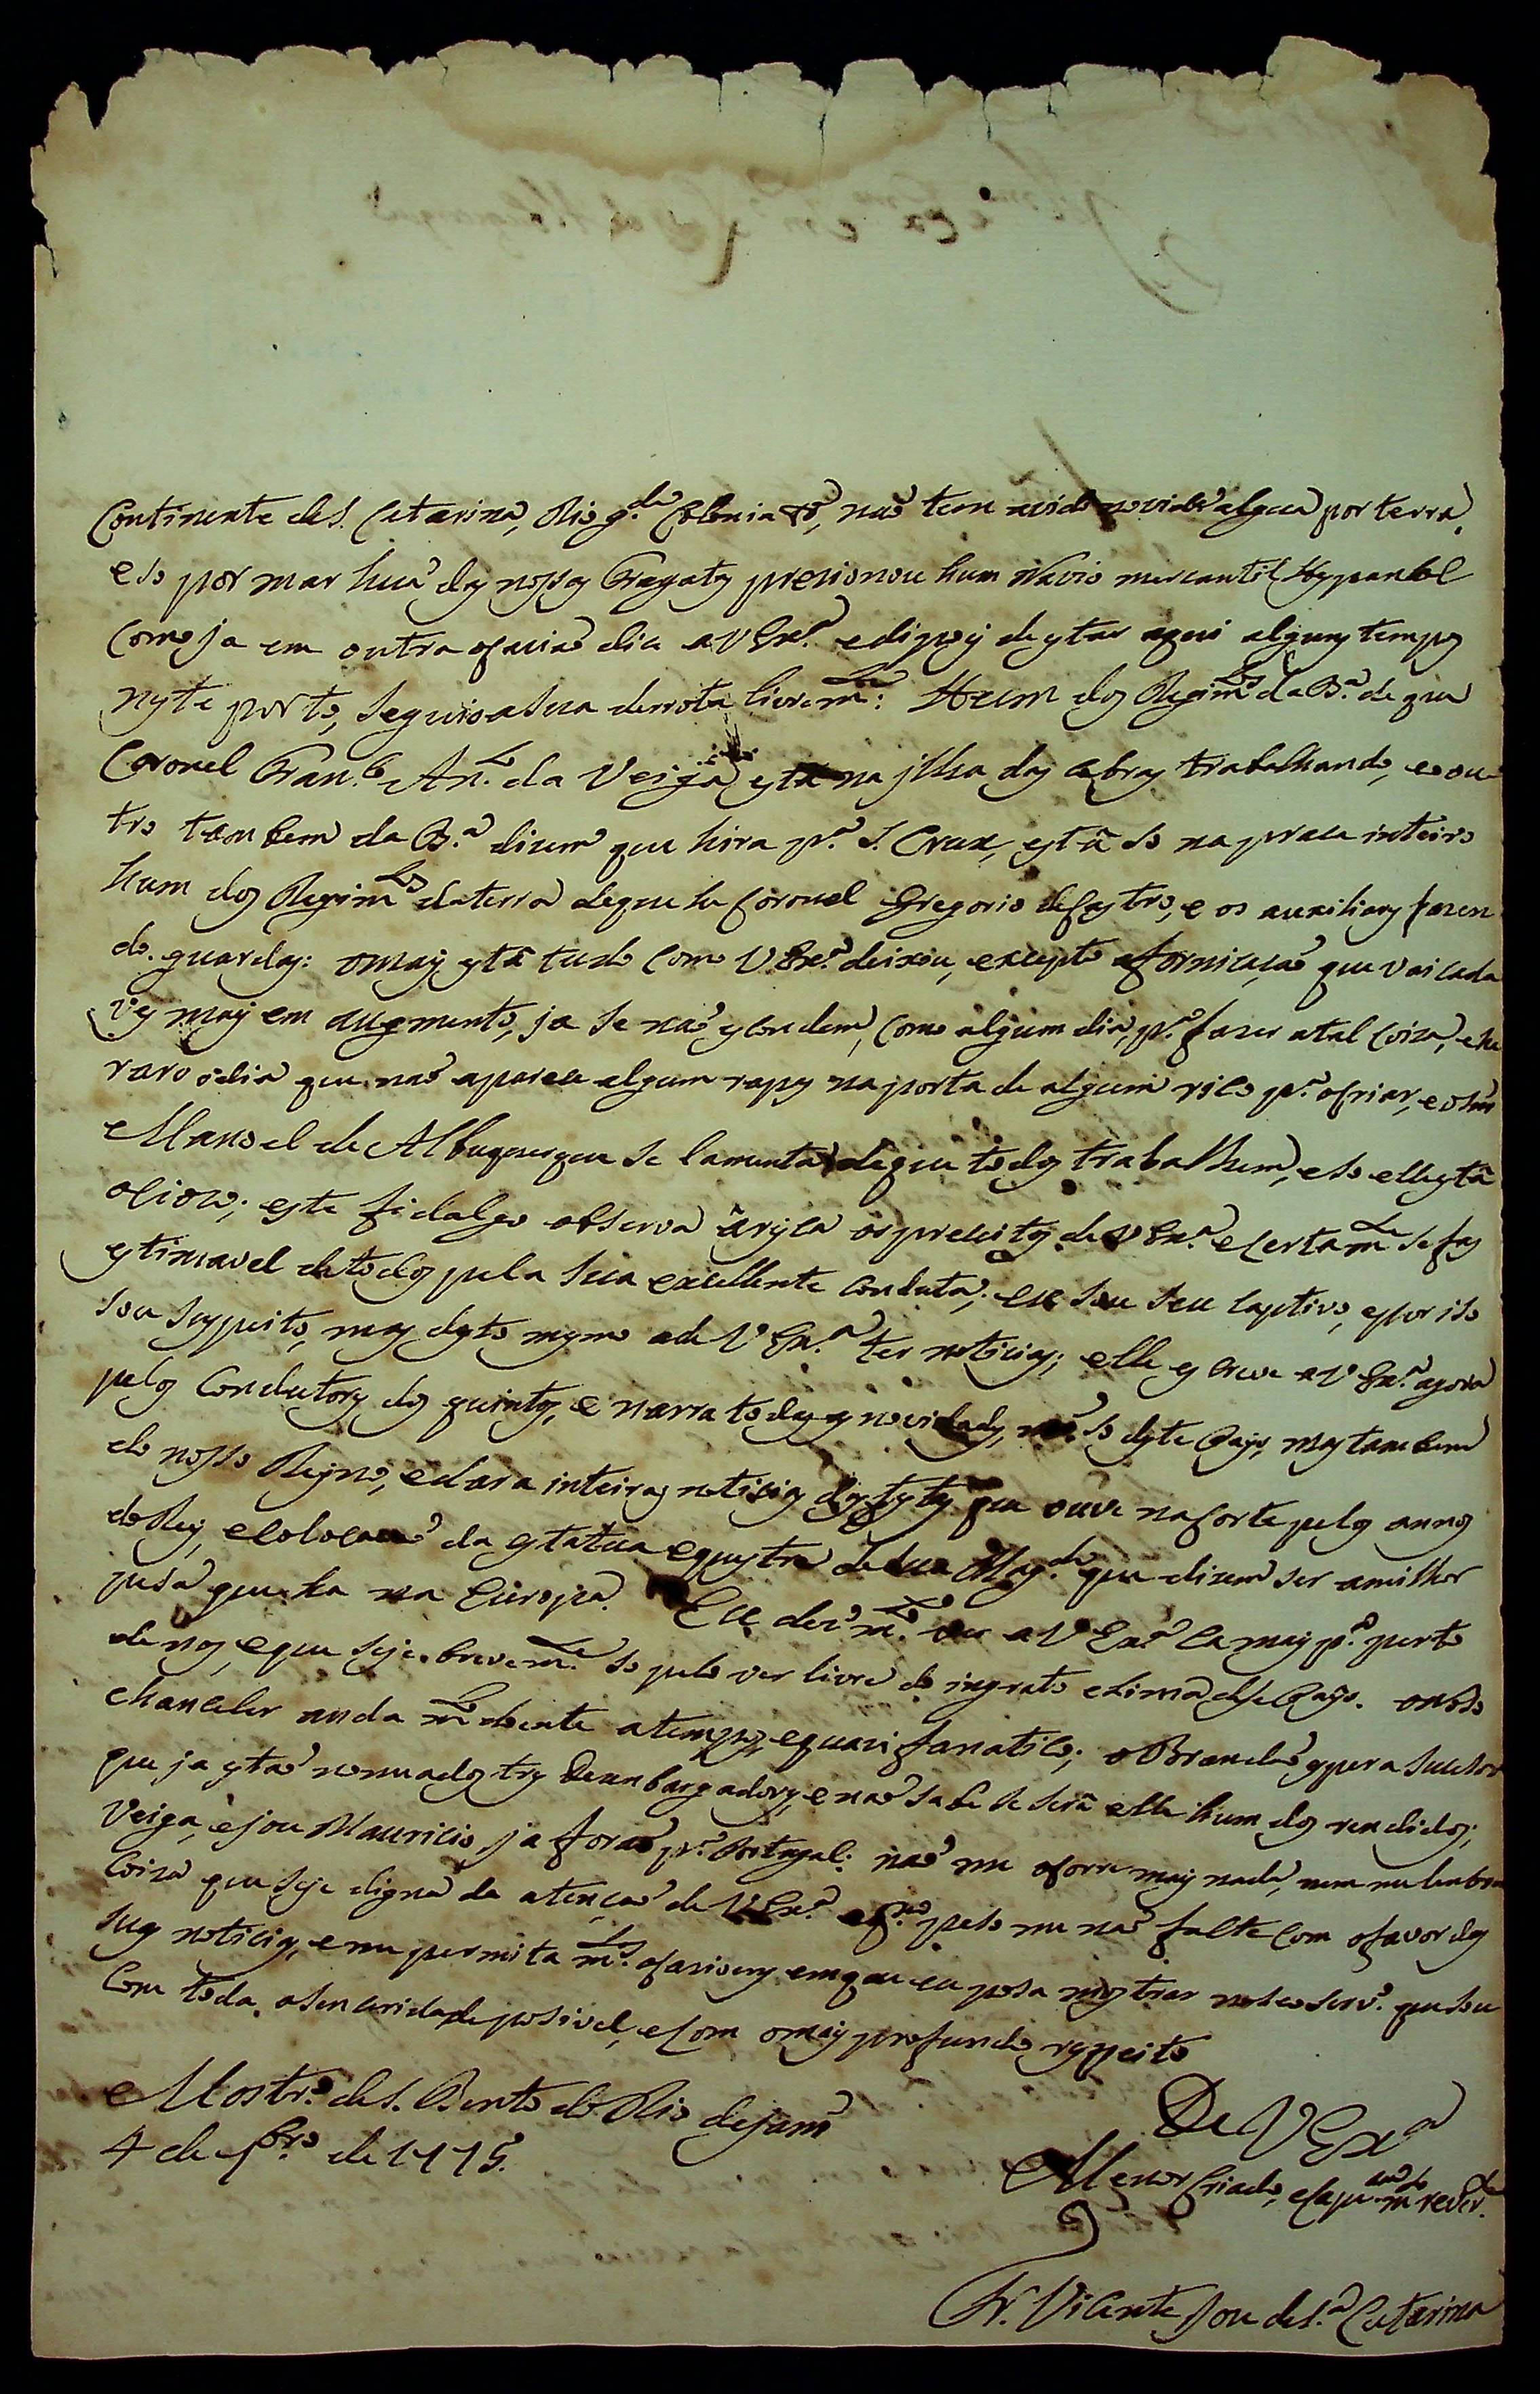 Continente de S. Catarina, Rio g.de Colonia &ª, naõ tem avido novide algua por terra,
e so por mar hua das nossas Fragatas prezionou hum Navio mercantil Hespanhol
como ja em outra ocaziaõ dice a V Exª. e dipois de estar aqui alguns tempos
neste porto, seguio a sua derrota livremte: Hum dos Regimtos da Bª. de que
Coronel Franco. Anto. da Veiga está na jlha das Cobras trabalhando, e ou
tro tambem da Bª. dizem que hira pª. S. Crux, está so na praca inteiro
hum dos Regimtos da terra de que he Coronel Gregorio de Castro, e os auxiliares fazen
do guardas: o mais está tudo como V Exª. deixou, excepto a fornicacaõ que vai cada
ves mais em augmento, ja se naõ escondem, como algum dia, pª. fazer a tal coiza, e he
raro o dia que naõ aparece algum rapas na porta de algum rico pª. o criar, e o Snr
Manoel de Albuquerque se lamenta de que todos trabalhem, e so elle está
ociozo; este fidalgo observa à risca os preceitos de V Exª. e certamte se fas
estimavel de todos pela sua excellente conduta; eu sou seu captivo, e por iso
sou suspeito, mas disto mesmo ade V Exª. ter noticias; elle escreve a V Exª. agora
pelos Condutores dos quintos, e narra todas as novidades, naõ so deste Pais, mas tambem
do nosso Reyno, e dara inteiras noticias das festas que ouve na Corte pelos annos
do Rey, e colocacaõ da estatua equestre de sua Magde. que dizem ser a milhor
pesa que ha na Europa. Eu dezº mto. ver a V Exª la mais pª. perto
de nos, e que seje brevemte. so pelo ver livre do ingrato clima dese Pais. o nosso
Chanceler anda mto doente a tempos, e quazi fanatico; o Brandaõ espera sucesor
que ja estaõ nomeados tres Dezenbargadores, e naõ sabe se será elle hum dos rendidos;
Veiga, e jose Mauricio, ja foraõ pª. Portugal: naõ me ocorre mais nada, nem me lenbra
coiza que seje digna da atençaõ de V Exª. peso me naõ falte com o favor das
suas noticias, e me permita mtas. ocazioens em que eu posa mostrar no seu servº. que sou
com toda a senceridade posivel, e com o mais profundo respeito
Mostrº. de S. Bento do Rio de janrº
4 de 8brº. de 1775.
De V Exª
Menor Criado, e Capam mto reverte.
Fr. Vicente Joze de S.ta Catarina